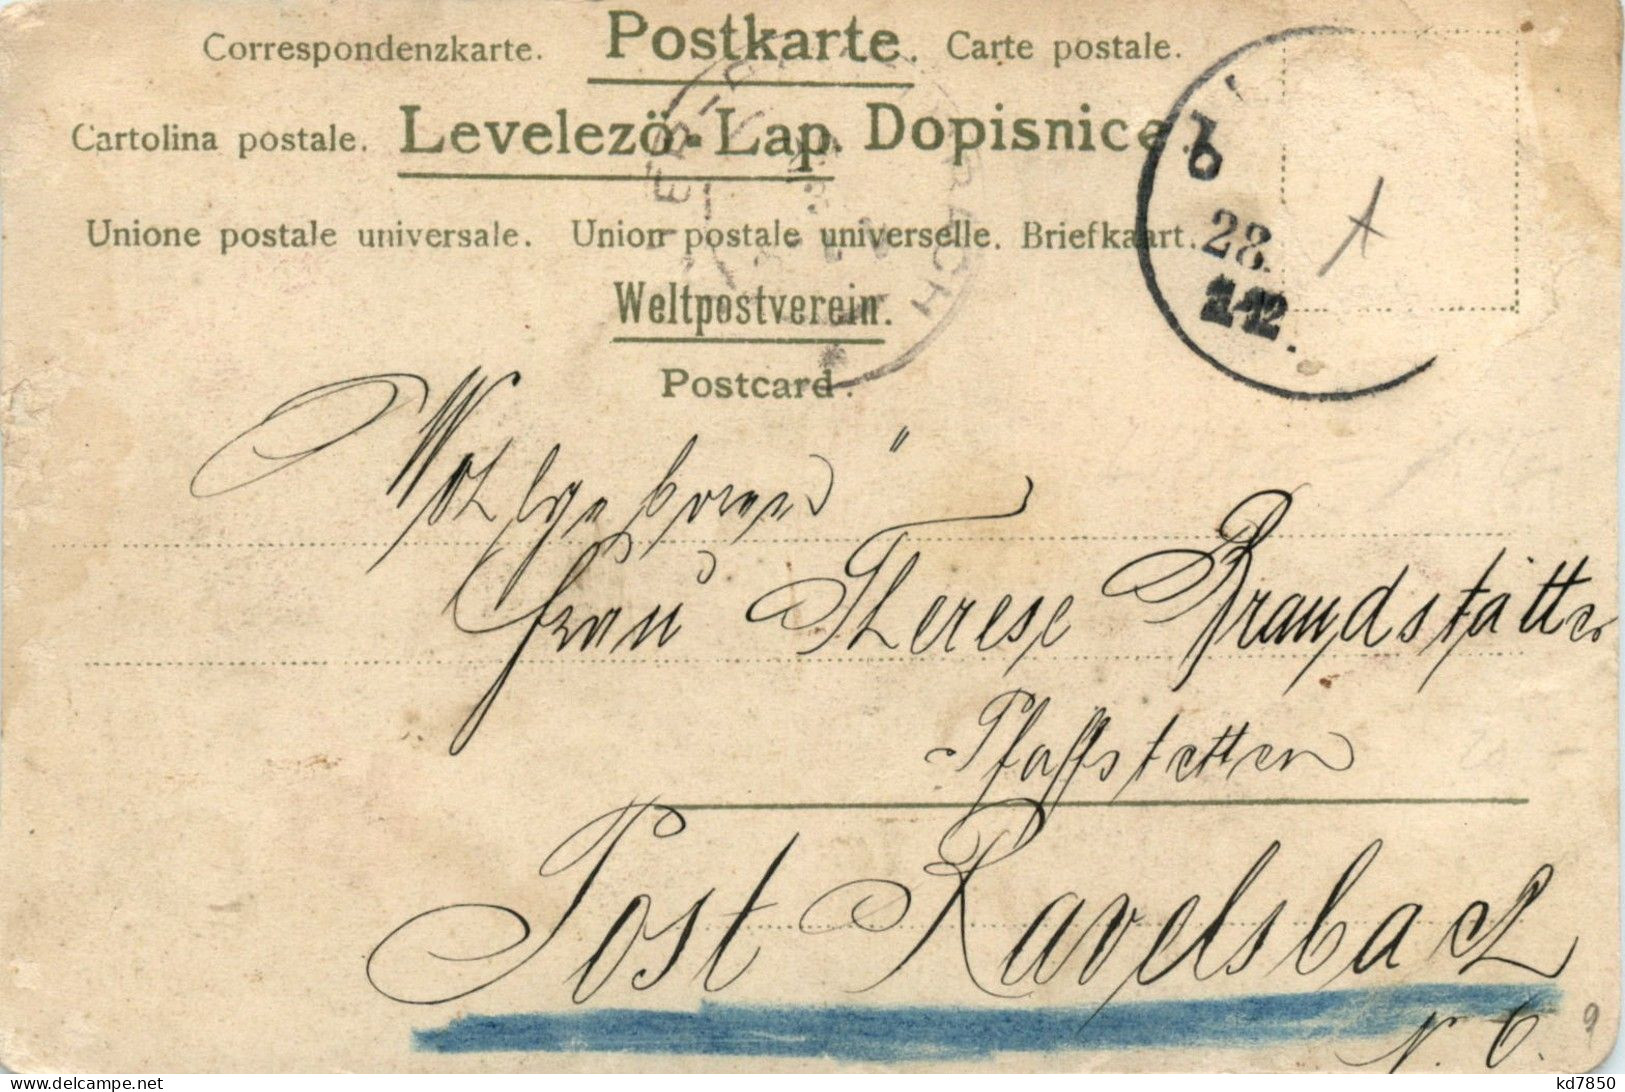 Correspondenzkarte. Postkarte. Carte postale.
Cartolina postale. Levelezö-Lap. Dopisnice.
Unione postale universale. Union postale universelle. Briefkaart.
Weltpostverein.
Postcard.
28.
12.
Wohlgeboren
Frau Therese Brandstätter
Pfaffstetten
Post Ravelsbach
N. Ö.
9
kd7850